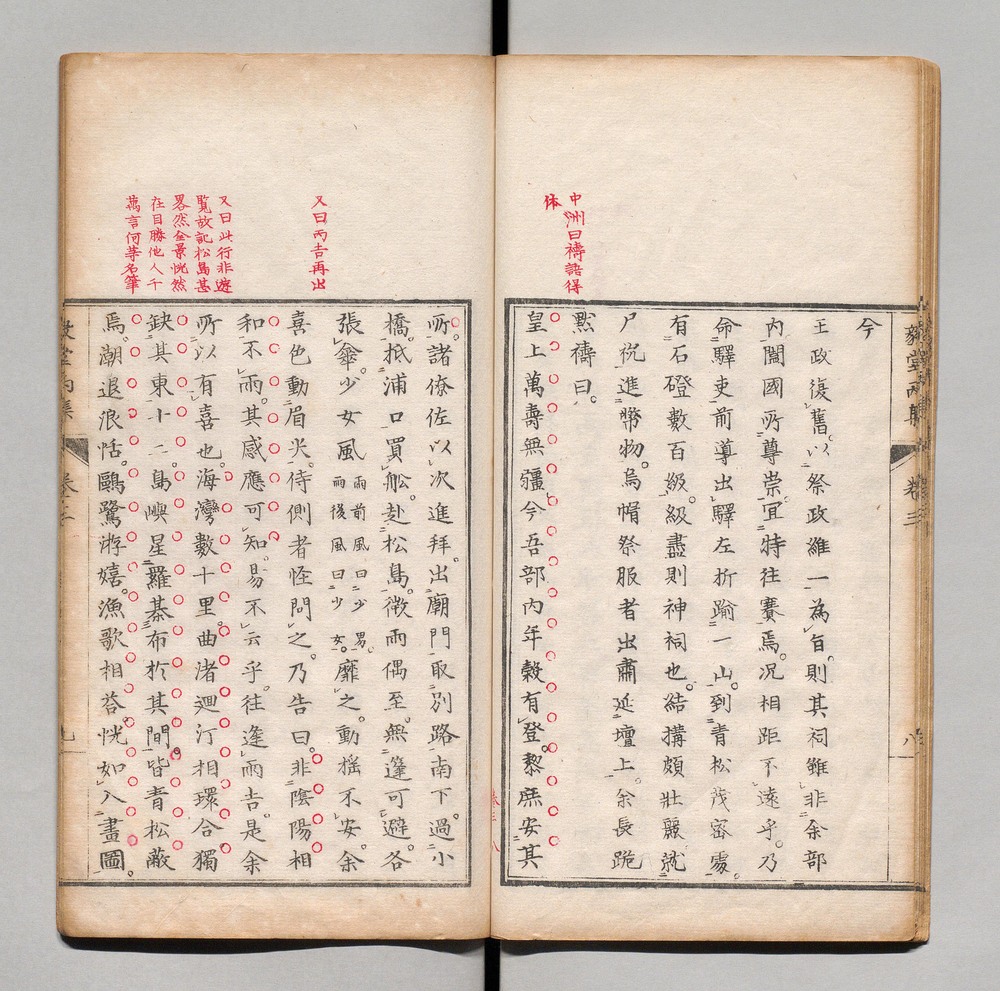 今
王政復舊以祭政維一為旨則其祠雖非余部
內闔國所尊崇宜特往賽焉况相距不遠乎乃
命驛吏前導出驛左折踰一山到青松茂密處
有石磴數百級級盡則神祠也結搆頗壯麗就
尸祝進幣物烏帽祭服者出肅延壇上余長跪
默禱曰
皇上萬壽無疆今吾部内年穀有登黎庶安其
中洲曰禱語得
体
卷三
八
所諸僚佐以次進拜出廟門取別路南下過小
橋抵浦口買舩赴松島微雨偶至無篷可避各
張傘少女風
雨前風曰少男
雨後風曰少女
靡之動搖不安余
喜色動眉尖侍側者怪問之乃告曰非陰陽相
和不雨其感應可知易不云乎往逢雨吉是余
所以有喜也海灣數十里曲渚迴汀相環合獨
缺其東十二島嶼星羅棊布於其間皆青松蔽
焉潮退浪恬鷗鷺游嬉漁歌相荅恍如入畫圖
又曰丙吉再出
又曰此行非遊
覧故記松島甚
畧然全景恍然
在目勝他人千
萬言何等名筆
卷三
九